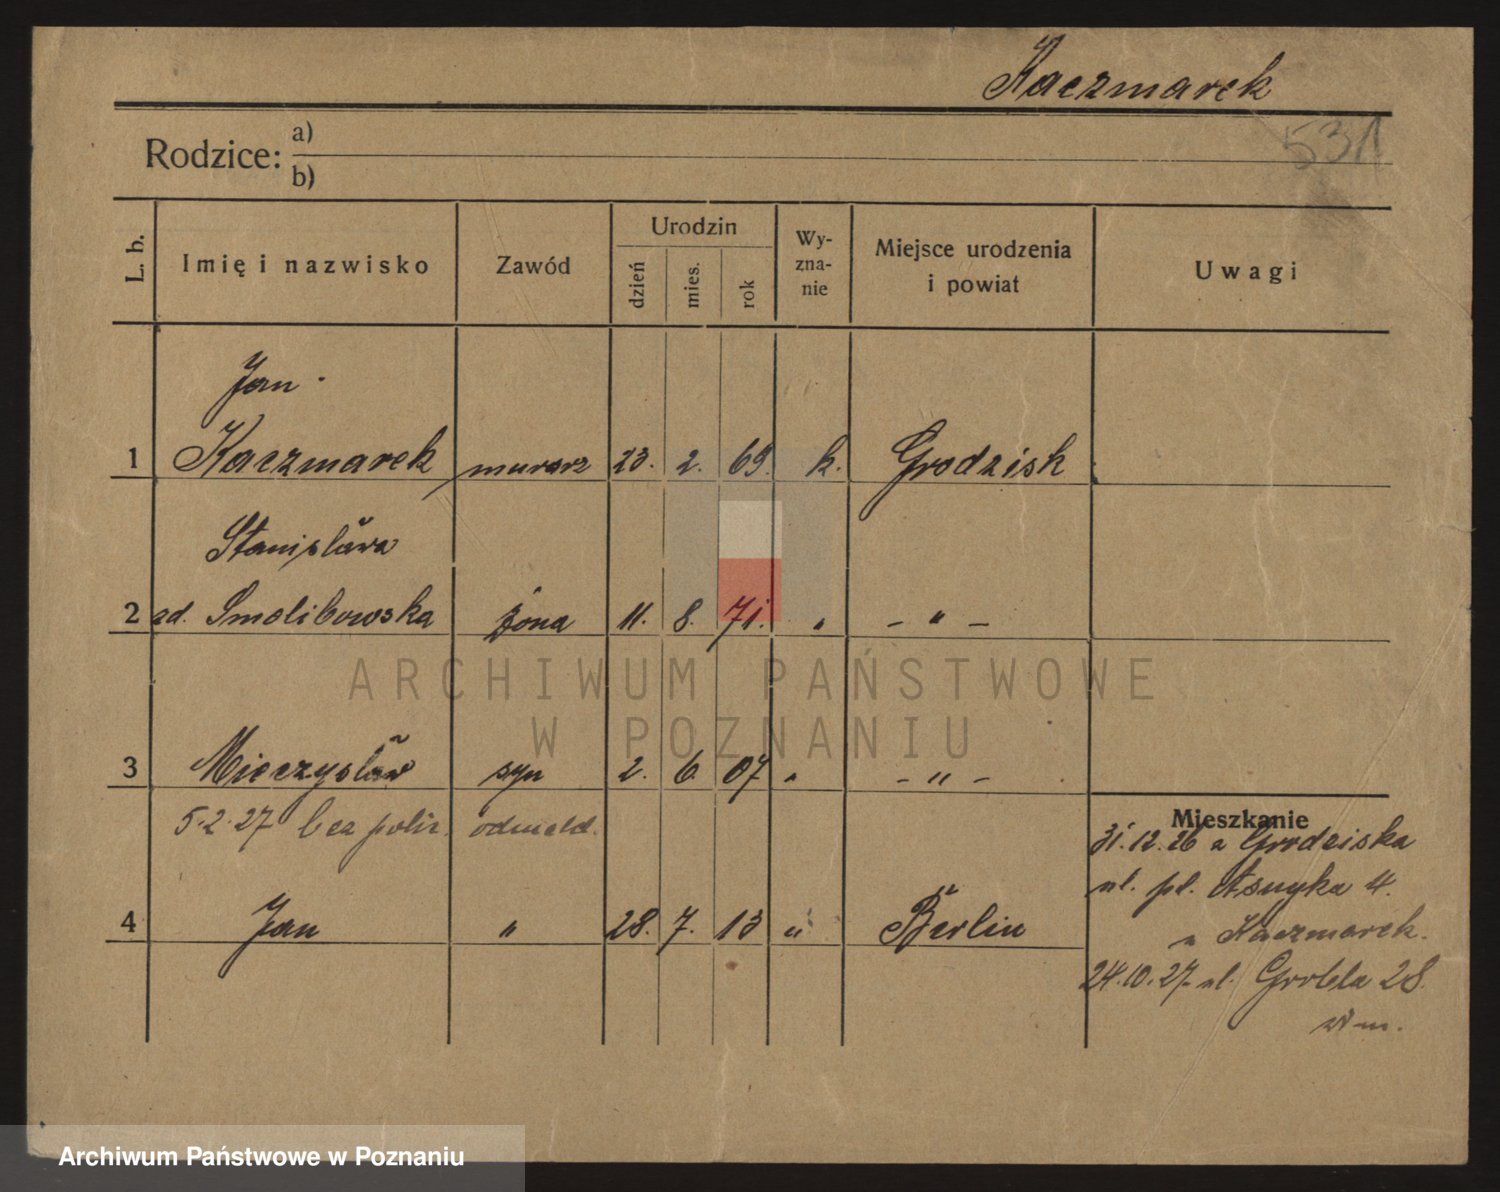 Kaczmarek
531
Rodzice: a)
b)
L. b. Imię i nazwisko Zawód Urodzin dzień mies. rok Wy-zna-nie Miejsce urodzenia i powiat Uwagi
Jan
1 Kaczmarek murarz 23. 2. 69. k. Grodzisk
Stanisława
2 zd. Smolibowska żona 11. 8. 71. " - " -
3 Mieczysław syn 2. 6. 07 " - " -
5.2.27 bez polic. odmeld.
4 Jan " 28. 7. 13 " Berlin
Mieszkanie
31.12.26 z Grodziska
ul. pl. Asnyka 4.
Kaczmarek.
24.10.27 ul. Grobla 28.
ARCHIWUM PAŃSTWOWE
W POZNANIU
Archiwum Państwowe w Poznaniu